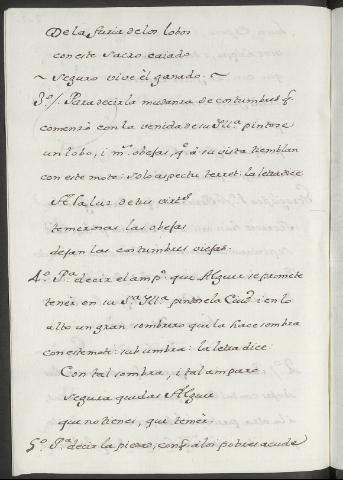 De la furia de los lobos
con este sacro caiado
~ seguro vive èl ganado. ~
3º/. Para decir la mudanza de costumbres q.
comenzò con la venida de su Ill.ª pintose
un lobo, i m.s obejas, q.e à su vista tiemblan
con este mote: Solo aspectu terret: la letra dice
A la luz de tus virt.s
temerosas las obejas
dejan las costumbres viejas.
4º. P.ª decir el amp.º que Alguer se promete
tenèr en su S.ª Ill.ª pintose la Ciud.d i en lo
alto un gran sombrero que la hace sombra
con este mote: sub umbra: la letra dice:
Con tal sombra, i tal amparo
segura quedas Alguer
que no tienes, que temèr
5º. P.ª decir la piedad, con q.e à los pobres acude